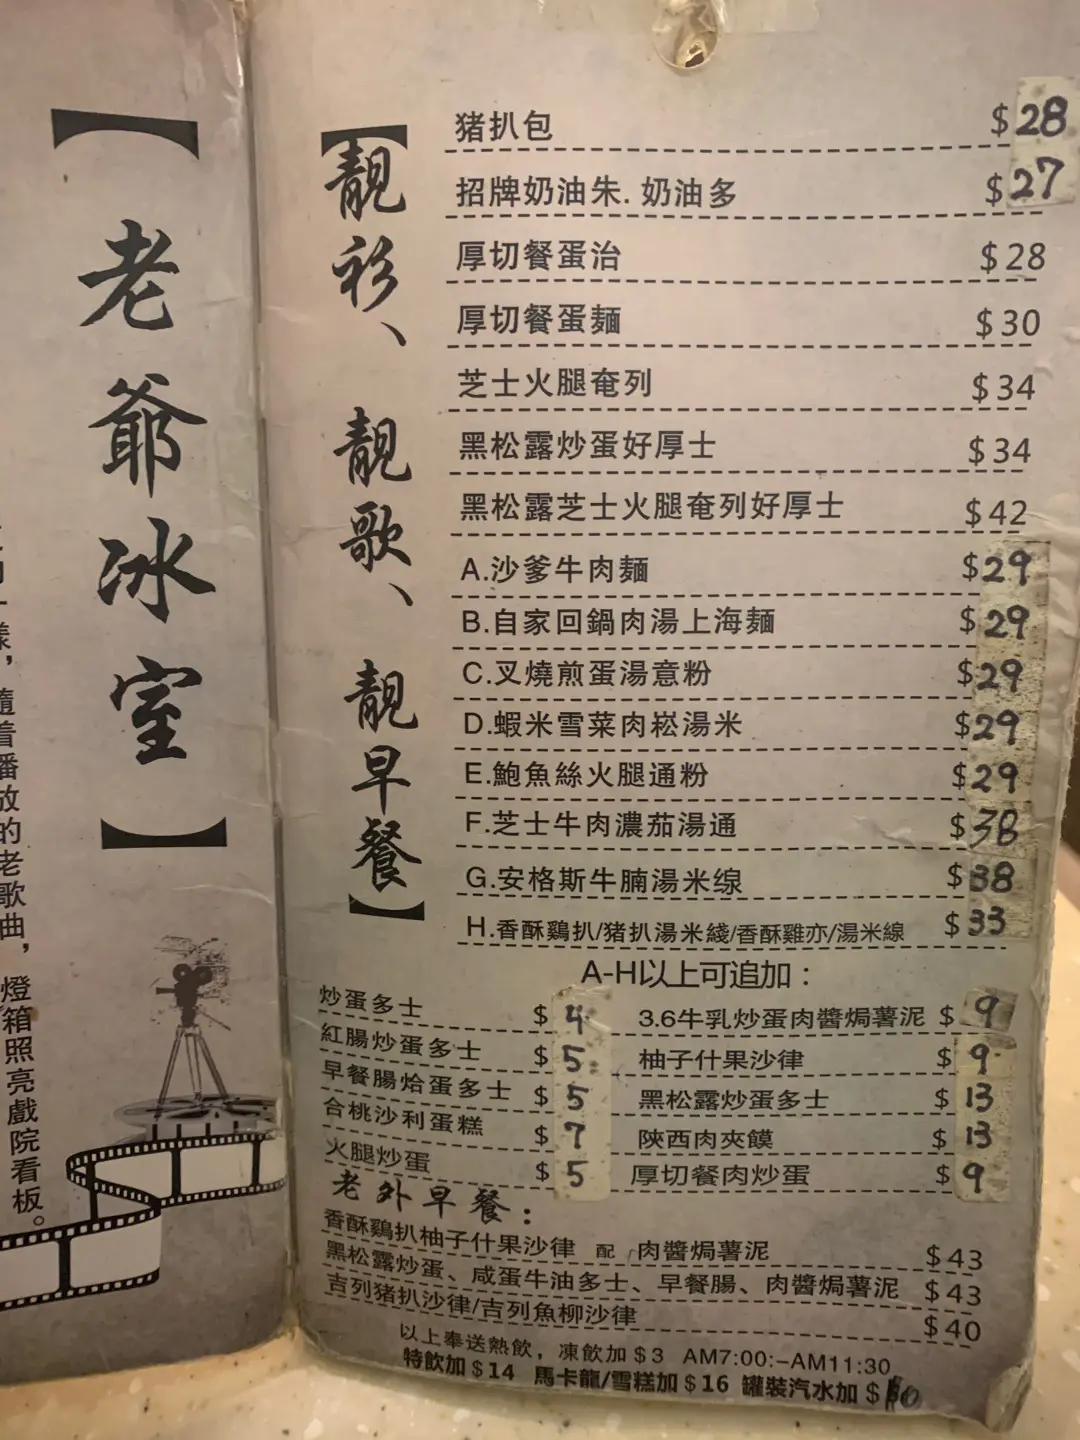 【老爺冰室】
樣，隨着播放的老歌曲，燈箱照亮戲院看板。
【靚衫、靚歌、靚早餐】
猪扒包 $28
招牌奶油朱. 奶油多 $27
厚切餐蛋治 $28
厚切餐蛋麵 $30
芝士火腿奄列 $34
黑松露炒蛋好厚士 $34
黑松露芝士火腿奄列好厚士 $42
A.沙爹牛肉麵 $29
B.自家回鍋肉湯上海麵 $29
C.叉燒煎蛋湯意粉 $29
D.蝦米雪菜肉崧湯米 $29
E.鮑魚絲火腿通粉 $29
F.芝士牛肉濃茄湯通 $38
G.安格斯牛腩湯米缐 $38
H.香酥鷄扒/猪扒湯米綫/香酥雞亦/湯米線 $33
A-H以上可追加：
炒蛋多士 $4
紅腸炒蛋多士 $5
早餐腸烚蛋多士 $5
合桃沙利蛋糕 $7
火腿炒蛋 $5
3.6牛乳炒蛋肉醬焗薯泥 $9
柚子什果沙律 $9
黑松露炒蛋多士 $13
陝西肉夾饃 $13
厚切餐肉炒蛋 $9
老外早餐：
香酥鷄扒柚子什果沙律 配 肉醬焗薯泥 $43
黑松露炒蛋、咸蛋牛油多士、早餐腸、肉醬焗薯泥 $43
吉列猪扒沙律/吉列魚柳沙律 $40
以上奉送熱飲，凍飲加$3 AM7:00:-AM11:30
特飲加$14 馬卡龍/雪糕加$16 罐裝汽水加$10